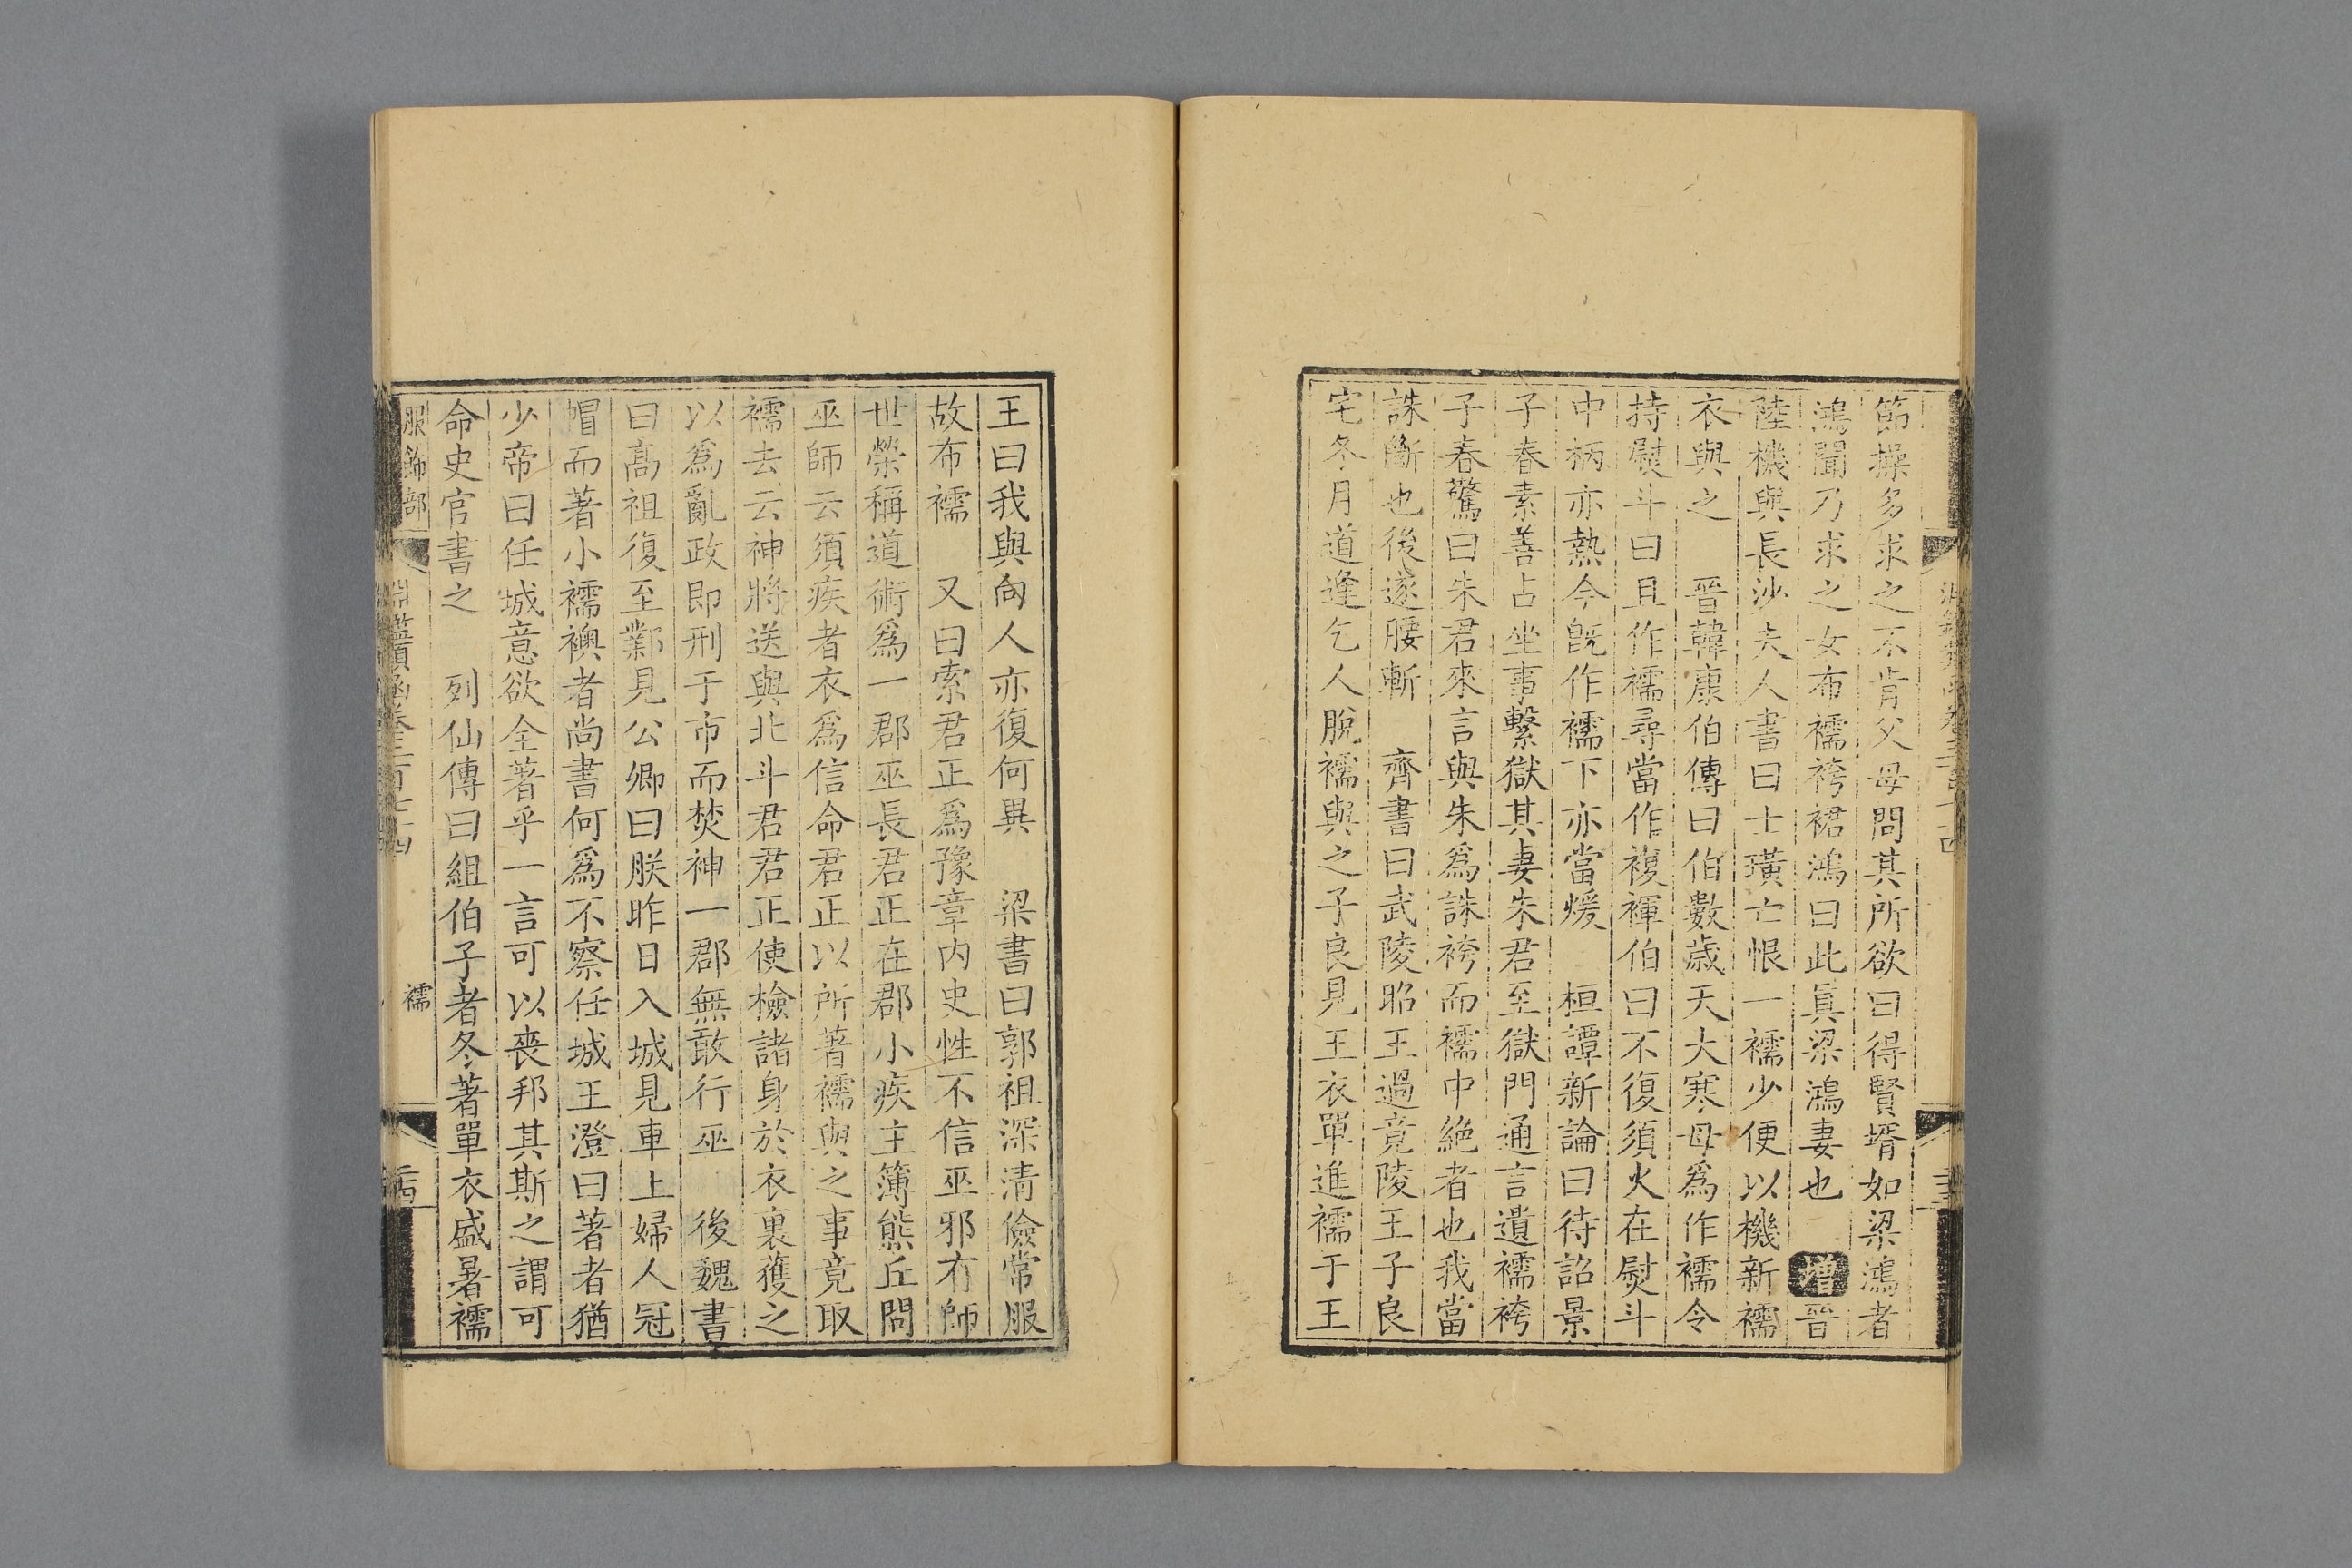 節操多求之不肯父母問其所欲曰得賢壻如梁鴻者
鴻聞乃求之女布襦袴裙鴻曰此眞梁鴻妻也　增晉
陸機與長沙夫人書曰士璜亡恨一襦少便以機新襦
衣與之　晉韓康伯傳曰伯數歲天大寒母爲作襦令
持熨斗曰且作襦尋當作複褌伯曰不復須火在熨斗
中柄亦熱今旣作襦下亦當煖　桓譚新論曰待詔景
子春素善占坐事繫獄其妻朱君至獄門通言遺襦袴
子春驚曰朱君來言與朱爲誅袴而襦中絶者也我當
誅斷也後遂腰斬　齊書曰武陵昭王過竟陵王子良
宅冬月道逢乞人脫襦與之子良見王衣單進襦于王
王曰我與向人亦復何異　梁書曰郭祖深清儉常服
故布襦　又曰索君正爲豫章内史性不信巫邪有師
世榮稱道術爲一郡巫長君正在郡小疾主簿熊丘問
巫師云須疾者衣爲信命君正以所著襦與之事竟取
襦去云神將送與北斗君君正使檢諸身於衣裏獲之
以爲亂政即刑于市而焚神一郡無敢行巫　後魏書
曰髙祖復至鄴見公卿曰朕昨日入城見車上婦人冠
帽而著小襦襖者尚書何爲不察任城王澄曰著者猶
少帝曰任城意欲全著乎一言可以喪邦其斯之謂可
命史官書之　列仙傳曰組伯子者冬著單衣盛暑襦
服飾部　淵鑑類函卷三百七十四　襦